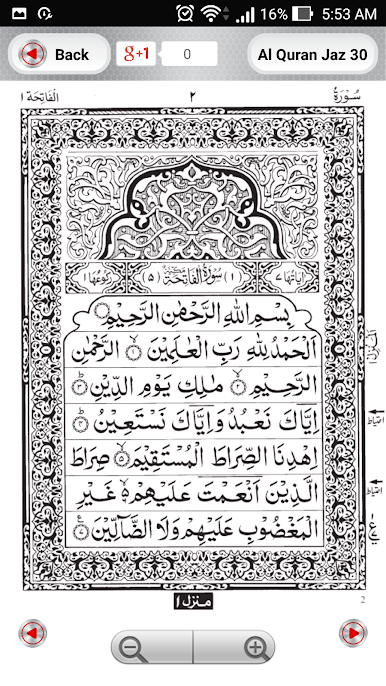 16% 5:53 AM
Back
g+1 0
Al Quran Jaz 30
الفاتحة ١ ٢ سُوۡرَةُ
اٰيَاتُهَا ٧ (١) سُوۡرَةُ الۡفَاتِحَةِ مَكِّيَّةٌ (٥) رُكُوۡعُهَا ١
بِسۡمِ اللهِ الرَّحۡمٰنِ الرَّحِيۡمِ
اَلۡحَمۡدُ لِلّٰهِ رَبِّ الۡعٰلَمِيۡنَ ۙ﴿١﴾ الرَّحۡمٰنِ
الرَّحِيۡمِ ۙ﴿٢﴾ مٰلِكِ يَوۡمِ الدِّيۡنِ ؕ﴿٣﴾
اِيَّاكَ نَعۡبُدُ وَاِيَّاكَ نَسۡتَعِيۡنُ ؕ﴿٤﴾
اِهۡدِنَا الصِّرَاطَ الۡمُسۡتَقِيۡمَ ۙ﴿٥﴾ صِرَاطَ
الَّذِيۡنَ اَنۡعَمۡتَ عَلَيۡهِمۡ ۙ﴿٦﴾ غَيۡرِ
الۡمَغۡضُوۡبِ عَلَيۡهِمۡ وَلَا الضَّآلِّيۡنَ ﴿٧﴾
احتياط
احتياط
منزل ١
2